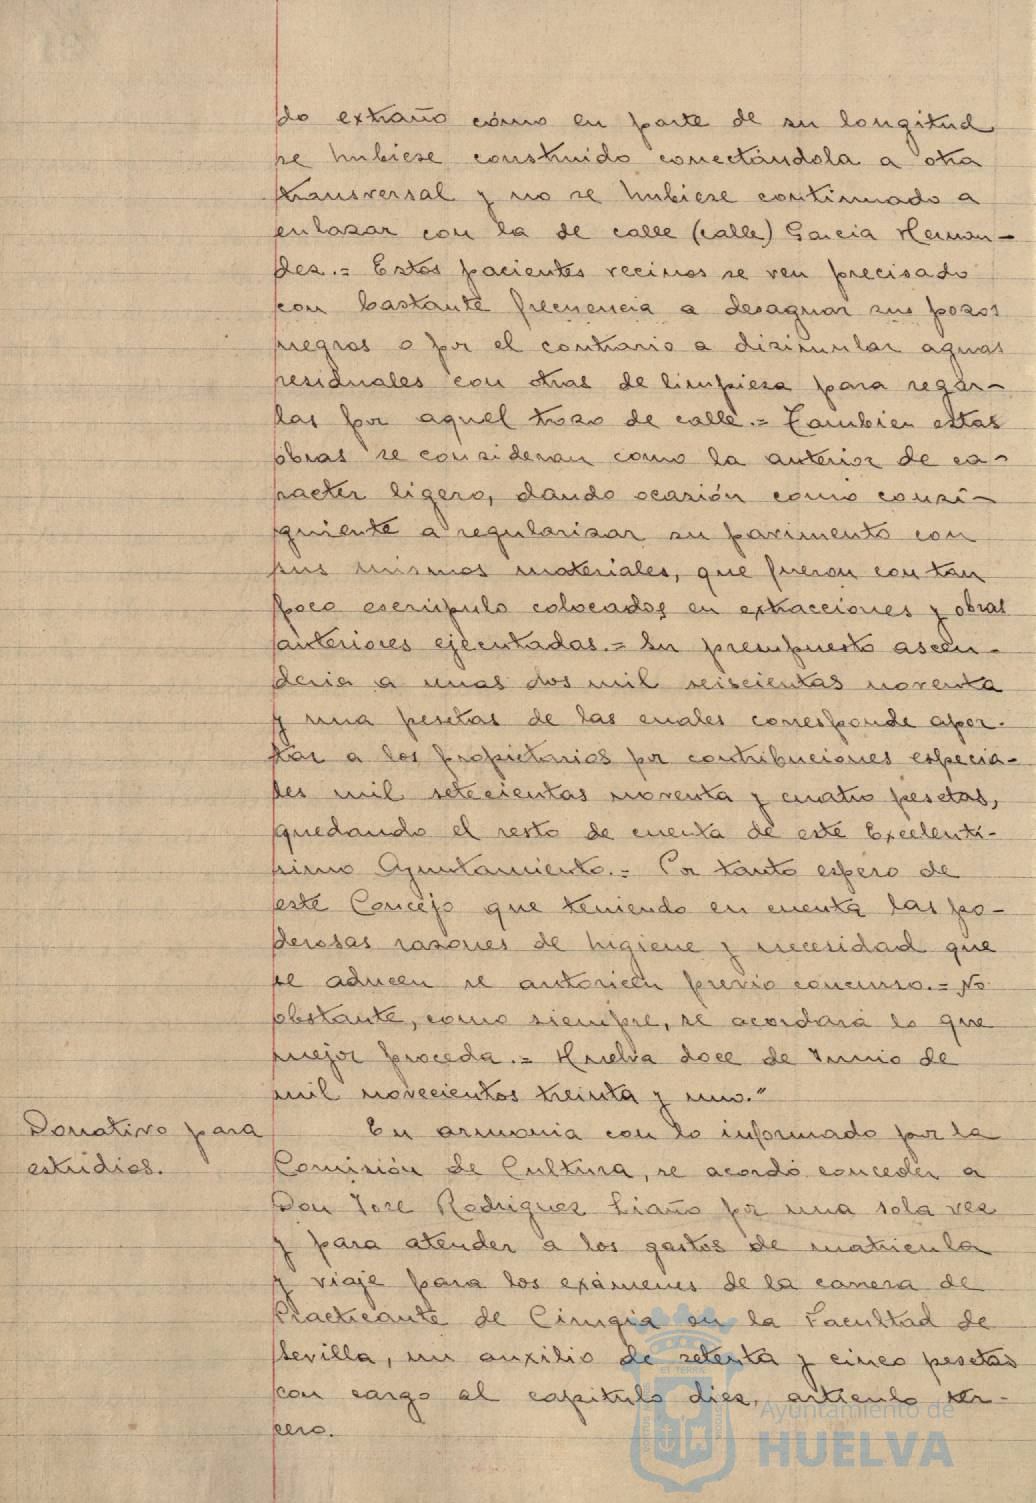 do extraño cómo en parte de su longitud
se hubiese construido conectándola a otra
transversal y no se hubiese continuado a
enlazar con la de calle (calle) Garcia Hernan-
dez.= Estos pacientes vecinos se ven precisado
con bastante frecuencia a desaguar sus pozos
negros o por el contrario a disimular aguas
residuales con otras de limpieza para regar-
las por aquel trozo de calle.= Tambien estas
obras se consideran como la anterior de ca-
racter ligero, dando ocasión como consi-
guiente a regularizar su pavimento con
sus mismos materiales, que fueron con tan
poco escrúpulo colocados en extracciones y obras
anteriores ejecutadas.= Su presupuesto ascen-
deria a unas dos mil seiscientas noventa
y una pesetas de las cuales corresponde apor-
tar a los propietarios por contribuciones especia-
les mil setecientas noventa y cuatro pesetas,
quedando el resto de cuenta de este Excelentí-
simo Ayuntamiento.= Por tanto espero de
este Concejo que teniendo en cuenta las po-
derosas razones de higiene y necesidad que
se aducen se autoricen previo concurso.= No
obstante, como siempre, se acordará lo que
mejor proceda.= Huelva doce de Junio de
mil novecientos treinta y uno."
Donativo para
estudios.
En armonia con lo informado por la
Comisión de Cultura, se acordó conceder a
Don Jose Rodriguez Liaño por una sola vez
y para atender a los gastos de matricula
y viaje para los exámenes de la carrera de
Practicante de Cirugia en la Facultad de
Sevilla, un auxilio de setenta y cinco pesetas
con cargo al capitulo diez, articulo ter-
cero.
Ayuntamiento de
HUELVA